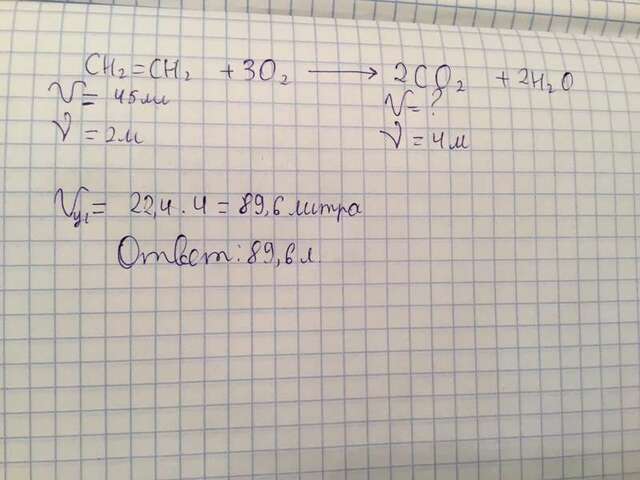 CH₂=CH₂ + 3O₂ ⟶ 2CO₂ + 2H₂O
V= 45мл V=?
ν=2м ν=4м
V = 22,4·4=89,6 литра
Ответ: 89,6 л